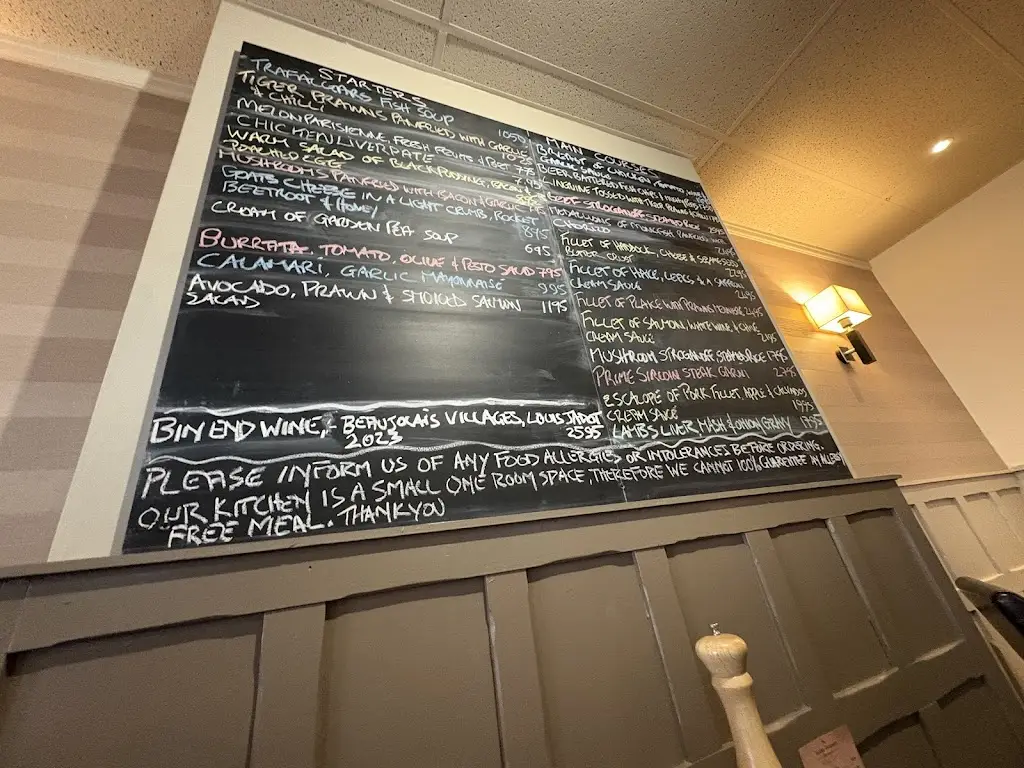 STARTERS
TRAFALGARS FISH SOUP 1050
TIGER PRAWNS PANFRIED WITH GARLIC
& CHILLI 1095
MELON PARISIENNE, FRESH FRUITS &
CHICKEN LIVER PATE
WARM SALAD OF BLACKPUDDING, BACON &
POACHED EGG
MUSHROOMS PANFRIED WITH BACON & GARLIC
GOATS CHEESE IN A LIGHT CRUMB, ROCKET
BEETROOT & HONEY 895
CREAM OF GARDEN PEA SOUP 695
BURRATA, TOMATO, OLIVE & PESTO SALAD 795
CALAMARI, GARLIC MAYONNAISE 995
AVOCADO, PRAWN & SMOKED SALMON 1195
SALAD
BIN END WINE,- BEAUJOLAIS VILLAGES, LOUIS JADOT
2023 2595
MAIN COURSES
BREAST OF CHICKEN
BEER BATTERED FISH
LINGUINE TOSSED WITH TIGER PRAWNS
BEEF STROGANOFF
MEDALLIONS OF MONKFISH
FILLET OF HADDOCK, CHEESE &
BUTTER CRUST
FILLET OF HAKE, LEEKS IN A SAFFRON
CREAM SAUCE
FILLET OF PLAICE WITH PRAWNS
FILLET OF SALMON, WHITE WINE & CHIVE
CREAM SAUCE
MUSHROOM STROGANOFF STEAMED RICE 1795
PRIME SIRLOIN STEAK GARNI
ESCALOPE OF PORK FILLET APPLE & CALVADOS
CREAM SAUCE 1995
LAMBS LIVER MASH & ONION GRAVY 1795
PLEASE INFORM US OF ANY FOOD ALLERGIES, OR INTOLERANCES BEFORE ORDERING.
OUR KITCHEN IS A SMALL ONE ROOM SPACE, THEREFORE WE CANNOT 100% GUARENTEE AN ALLERGEN
FREE MEAL. THANKYOU